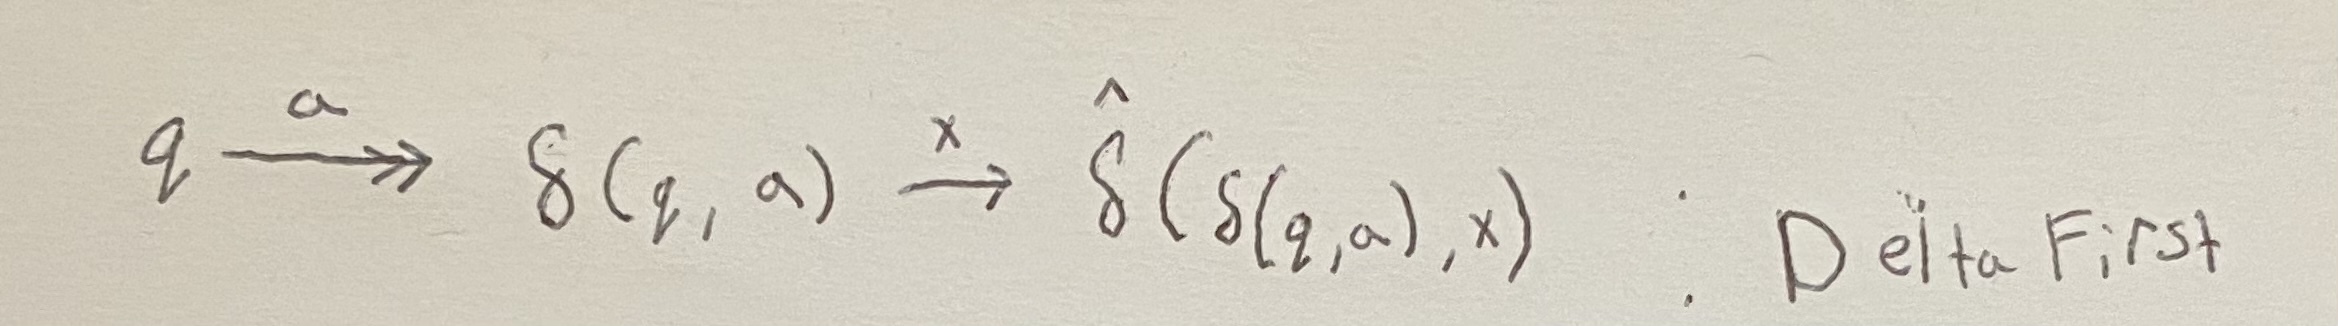 q —a↠ δ(q, a) —x→ δ̂(δ(q,a),x) : Delta First